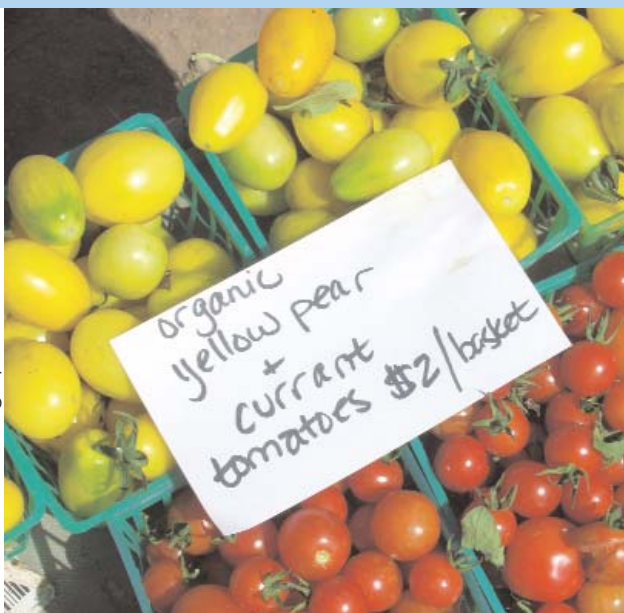 organic
yellow pear
+
currant
tomatoes $2/basket